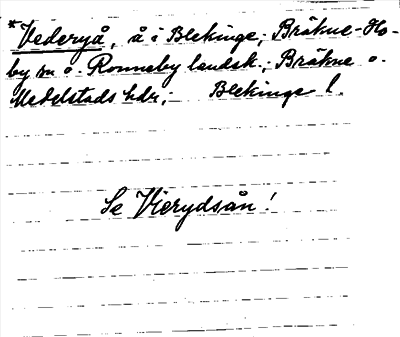 *Vederyå, å i Blekinge; Bräkne-Ho-
by sn o. Ronneby landsk.; Bräkne o.
Medelstads hdr; Blekinge l.
Se Vierydsån!